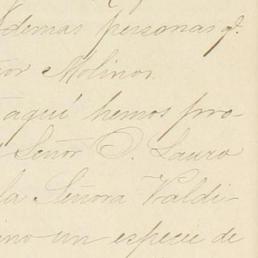 demas personas q.
or Molinos.
aquí hemos pro-
Señor D. Lauro
la Señora Valdi-
ino un especie de